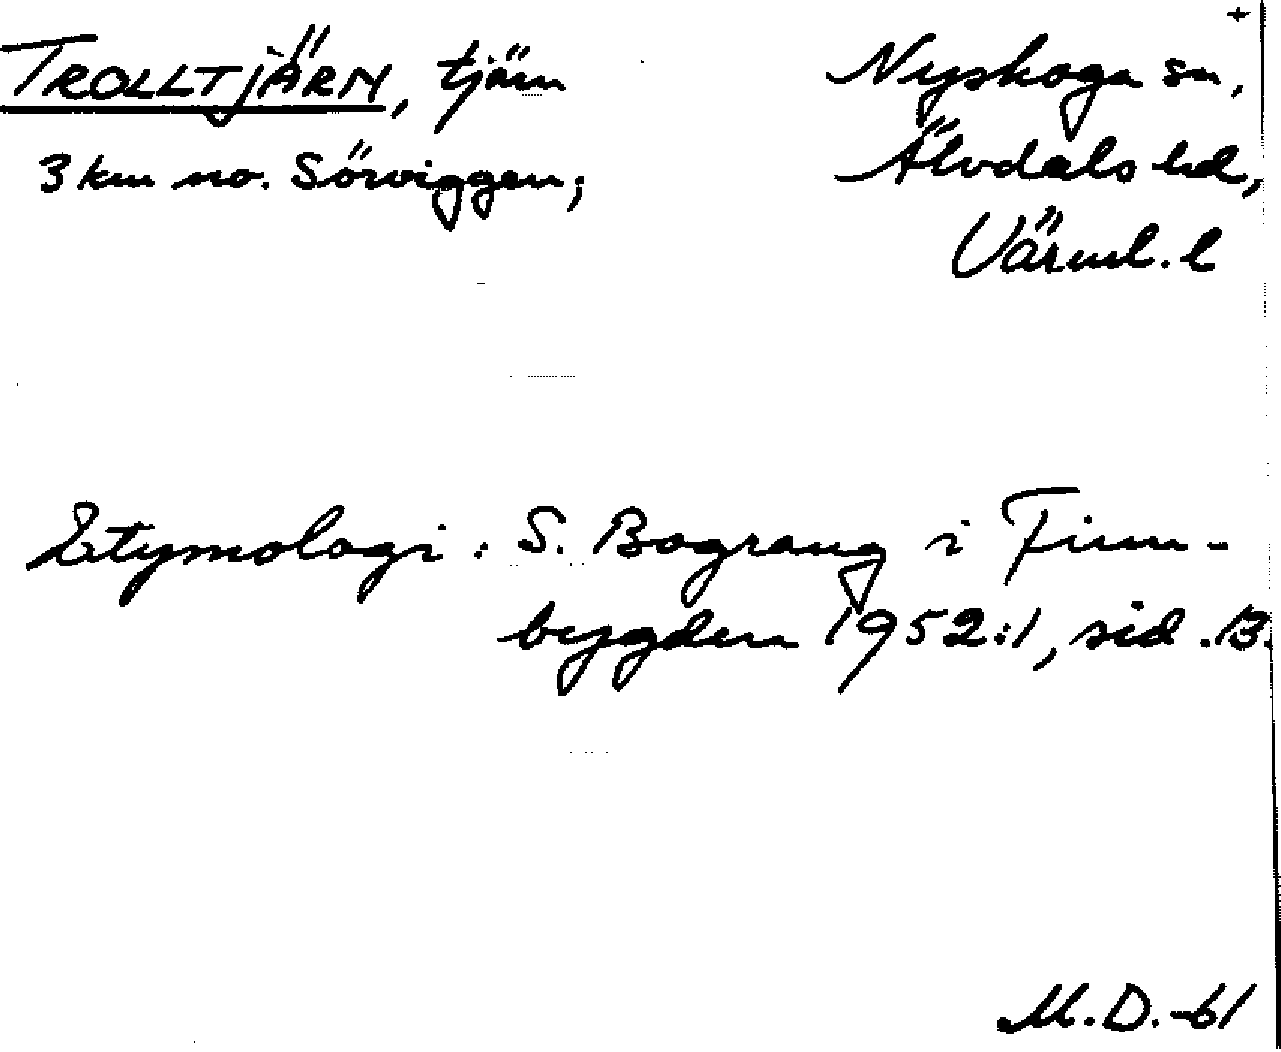 +
TROLLTJÄRN, tjärn
3 km no. Sörviggen;
Nyskoga sn,
Älvdals hd,
Värml. l
Etymologi: S. Bograng i Finn-
bygden 1952:1, sid. 13.
M.D.-61